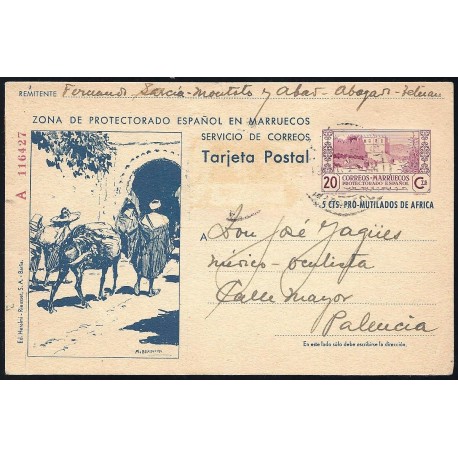 REMITENTE Fernando García-Monteto y Abad - Abogado - Tetuan
ZONA DE PROTECTORADO ESPAÑOL EN MARRUECOS
SERVICIO DE CORREOS
Tarjeta Postal
A 116427
CORREOS-MARRUECOS
PROTECTORADO ESPAÑOL
20 Cts
5 CTS. PRO-MUTILADOS DE AFRICA
A Don José Jaques
médico-oculista
Calle Mayor
Palencia
En este lado sólo debe escribirse la dirección.